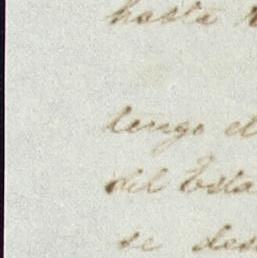 hasta
tengo el
del Esta
se des